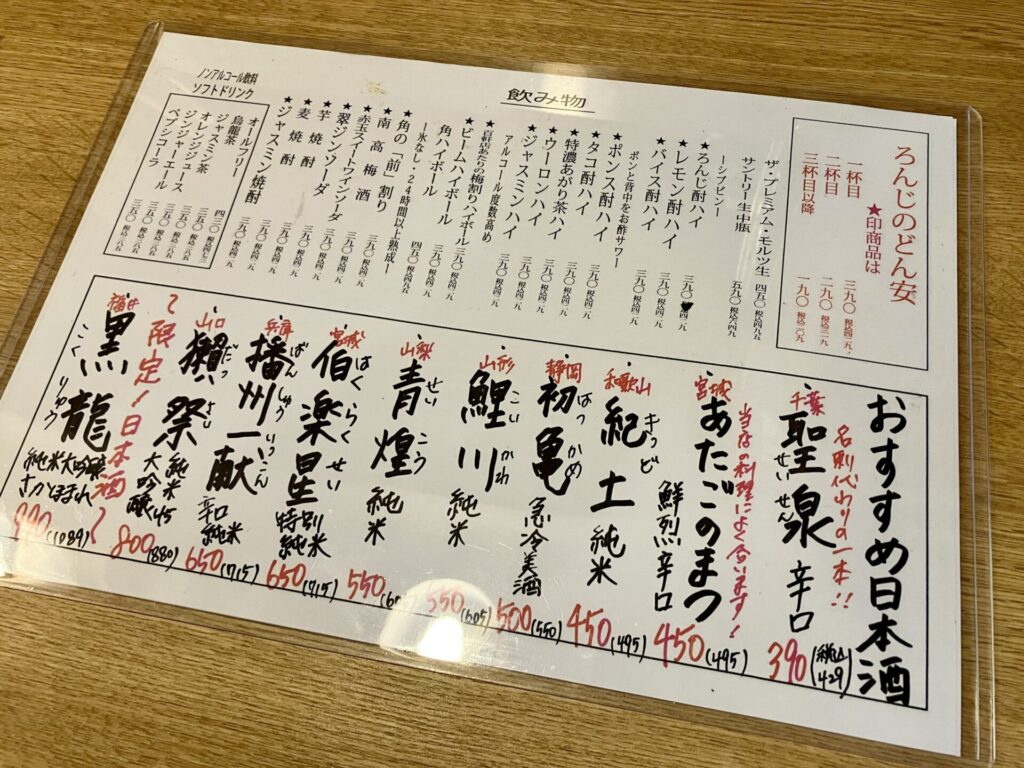 飲み物
ろんじのどん安
★印商品は
一杯目 三九〇 税込四二九
二杯目 二九〇 税込三一九
三杯目以降 一九〇 税込二〇九
ザ・プレミアム・モルツ生 四五〇 税込四九五
サントリー生中瓶 五九〇 税込六四九
★ろんじ酎ハイ 三九〇
★レモン酎ハイ 三九〇 税込四二九
★バイス酎ハイ 三九〇 税込四二九
ポンと背中をお酢サワー
★ポンス酎ハイ 三九〇 税込四二九
★タコ酎ハイ 三九〇 税込四二九
★特濃あがり茶ハイ 三九〇 税込四二九
★ウーロンハイ 三九〇 税込四二九
★ジャスミンハイ 三九〇 税込四二九
アルコール度数高め
★百軒店あたりの梅割りハイボール 三九〇 税込四二九
★ビームハイボール 三九〇 税込四二九
角ハイボール 四五〇 税込四九五
ー氷なし・24時間以上熟成ー
★角の「前」割り 三九〇 税込四二九
★南高梅酒 三九〇 税込四二九
★赤玉スイートワインソーダ 三九〇 税込四二九
★翠ジンソーダ 三九〇 税込四二九
★芋焼酎 三九〇 税込四二九
★麦焼酎 三九〇 税込四二九
★ジャスミン焼酎 三九〇 税込四二九
ノンアルコール飲料
ソフトドリンク
オールフリー 四三〇 税込四七三
烏龍茶 三五〇 税込三八五
ジャスミン茶 三五〇 税込三八五
オレンジジュース 三五〇 税込三八五
ジンジャーエール 三五〇 税込三八五
ペプシコーラ 三五〇 税込三八五
おすすめ日本酒
名刺代わりの一本!!
千葉 聖泉 せいせん 辛口 390(税込429)
当店の料理によく合います!
宮城 あたごのまつ 鮮烈辛口 450(495)
和歌山 紀土 きっど 純米 450(495)
静岡 初亀 はつかめ 急冷美酒 500(550)
山形 鯉川 こいかわ 純米 550(605)
山梨 青煌 せいこう 純米 550(605)
宮城 伯楽星 はくらくせい 特別純米 650(715)
兵庫 播州一献 ばんしゅういっこん 辛口純米 650(715)
山口 獺祭 だっさい 純米大吟醸45 800(880)
〜限定!日本酒〜
福井 黒龍 こくりゅう 純米大吟醸 さかほまれ 990(1089)